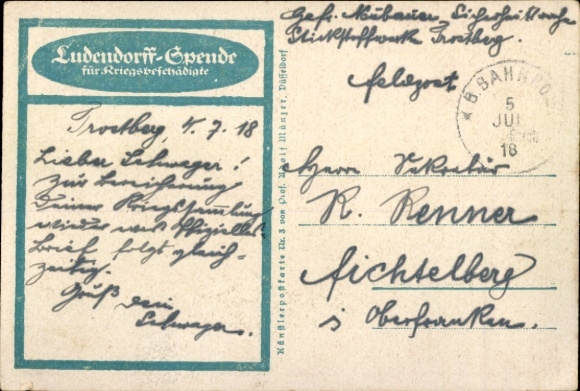 Ludendorff-Spende
für Kriegsbeschädigte
Trostberg, 4. 7. 18
Lieber Schwager!
Zur Bereicherung
Deiner Kriegssammlung
wieder was Offizielles.
Brief folgt gleich-
zeitig.
Gruß Dein
Schwager.
Künstlerpostkarte Nr. 3 von Prof. Adolf Münzer, Düsseldorf
Gefr. Neubauer, Sicherheitswache
Stickstoffwerke Trostberg.
Feldpost
K.B.BAHNPO
5
JUL
18
Herrn Sekretär
K. Renner
Fichtelberg
Oberfranken.